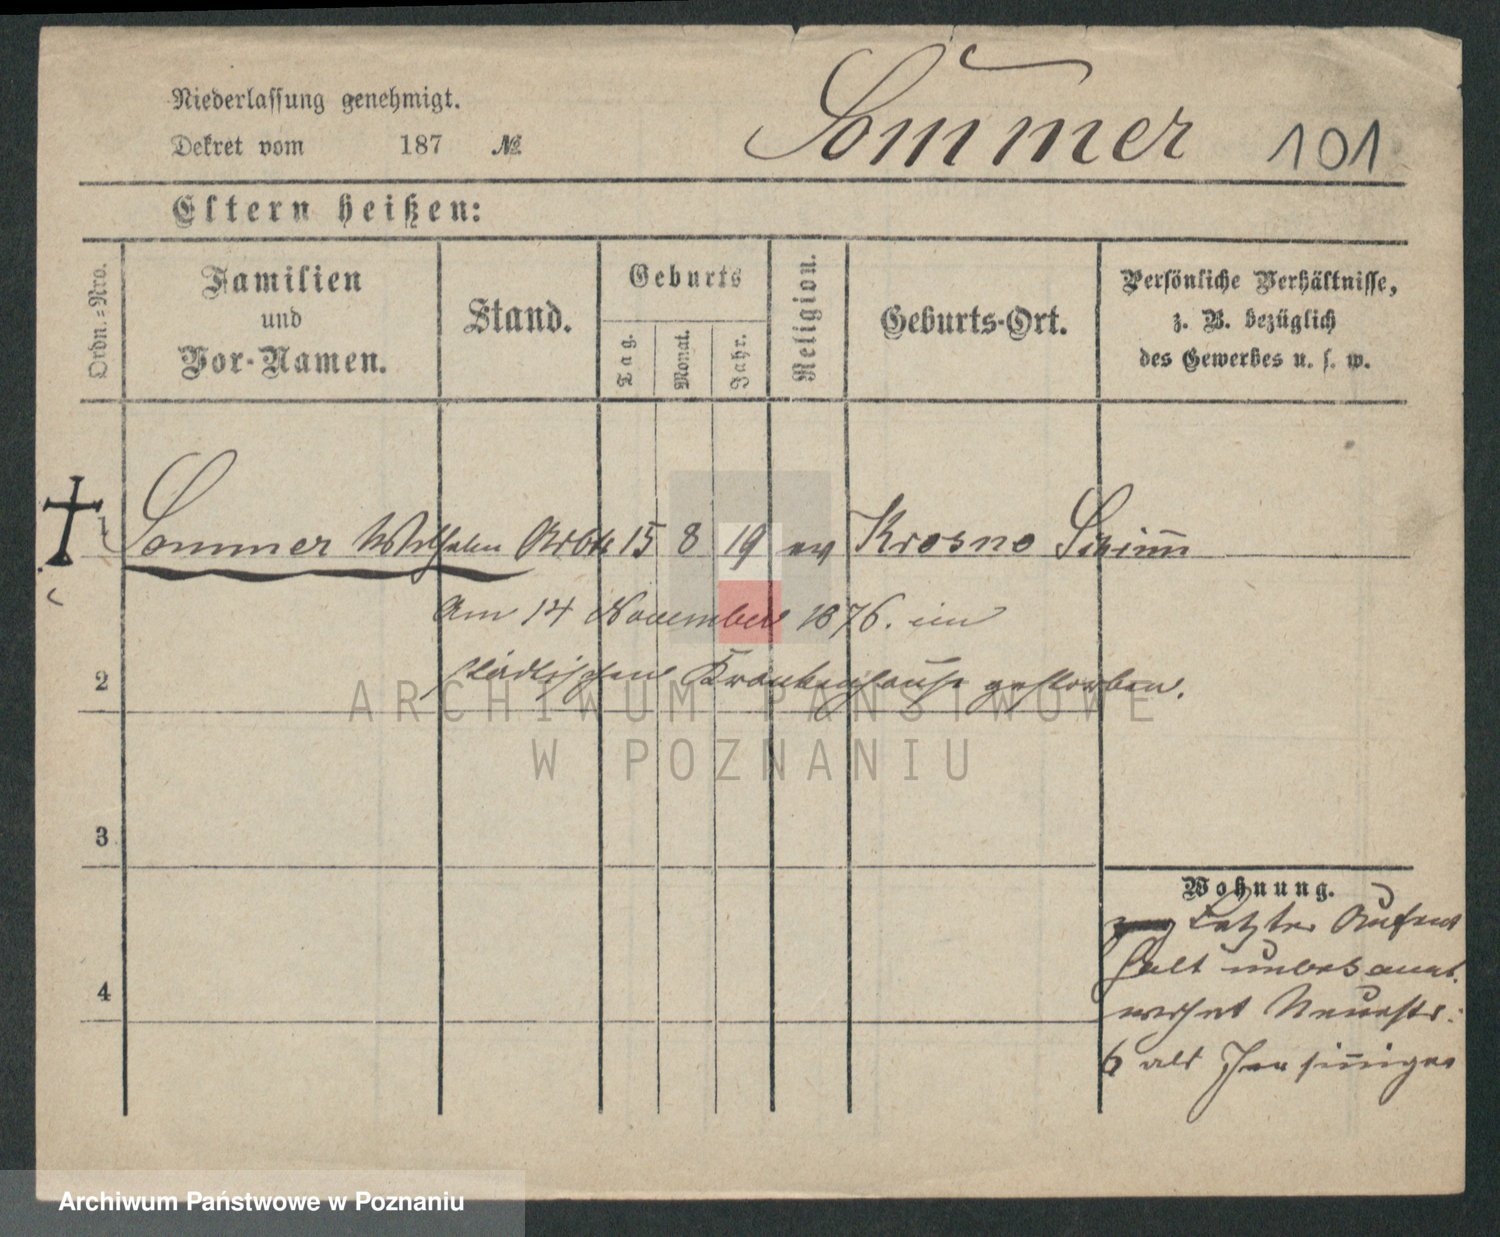 Niederlassung genehmigt.
Dekret vom 187 №
Sommer 101
Eltern heißen:
Ordn.=Nro.
Familien
und
Vor-Namen.
Stand.
Geburts
Tag.
Monat.
Jahr.
Religion.
Geburts-Ort.
Persönliche Verhältnisse,
z. B. bezüglich
des Gewerbes u. s. w.
1 Sommer Wilhelm Arbtr 15 8 19 ev Krosno Schrimm
Am 14 November 1876. im
2 städtischen Krankenhause gestorben.
3
Wohnung.
Letzter Aufent
halt unbekannt.
4
wohnt Neuestr:
6 als
ARCHIWUM PAŃSTWOWE
W POZNANIU
Archiwum Państwowe w Poznaniu